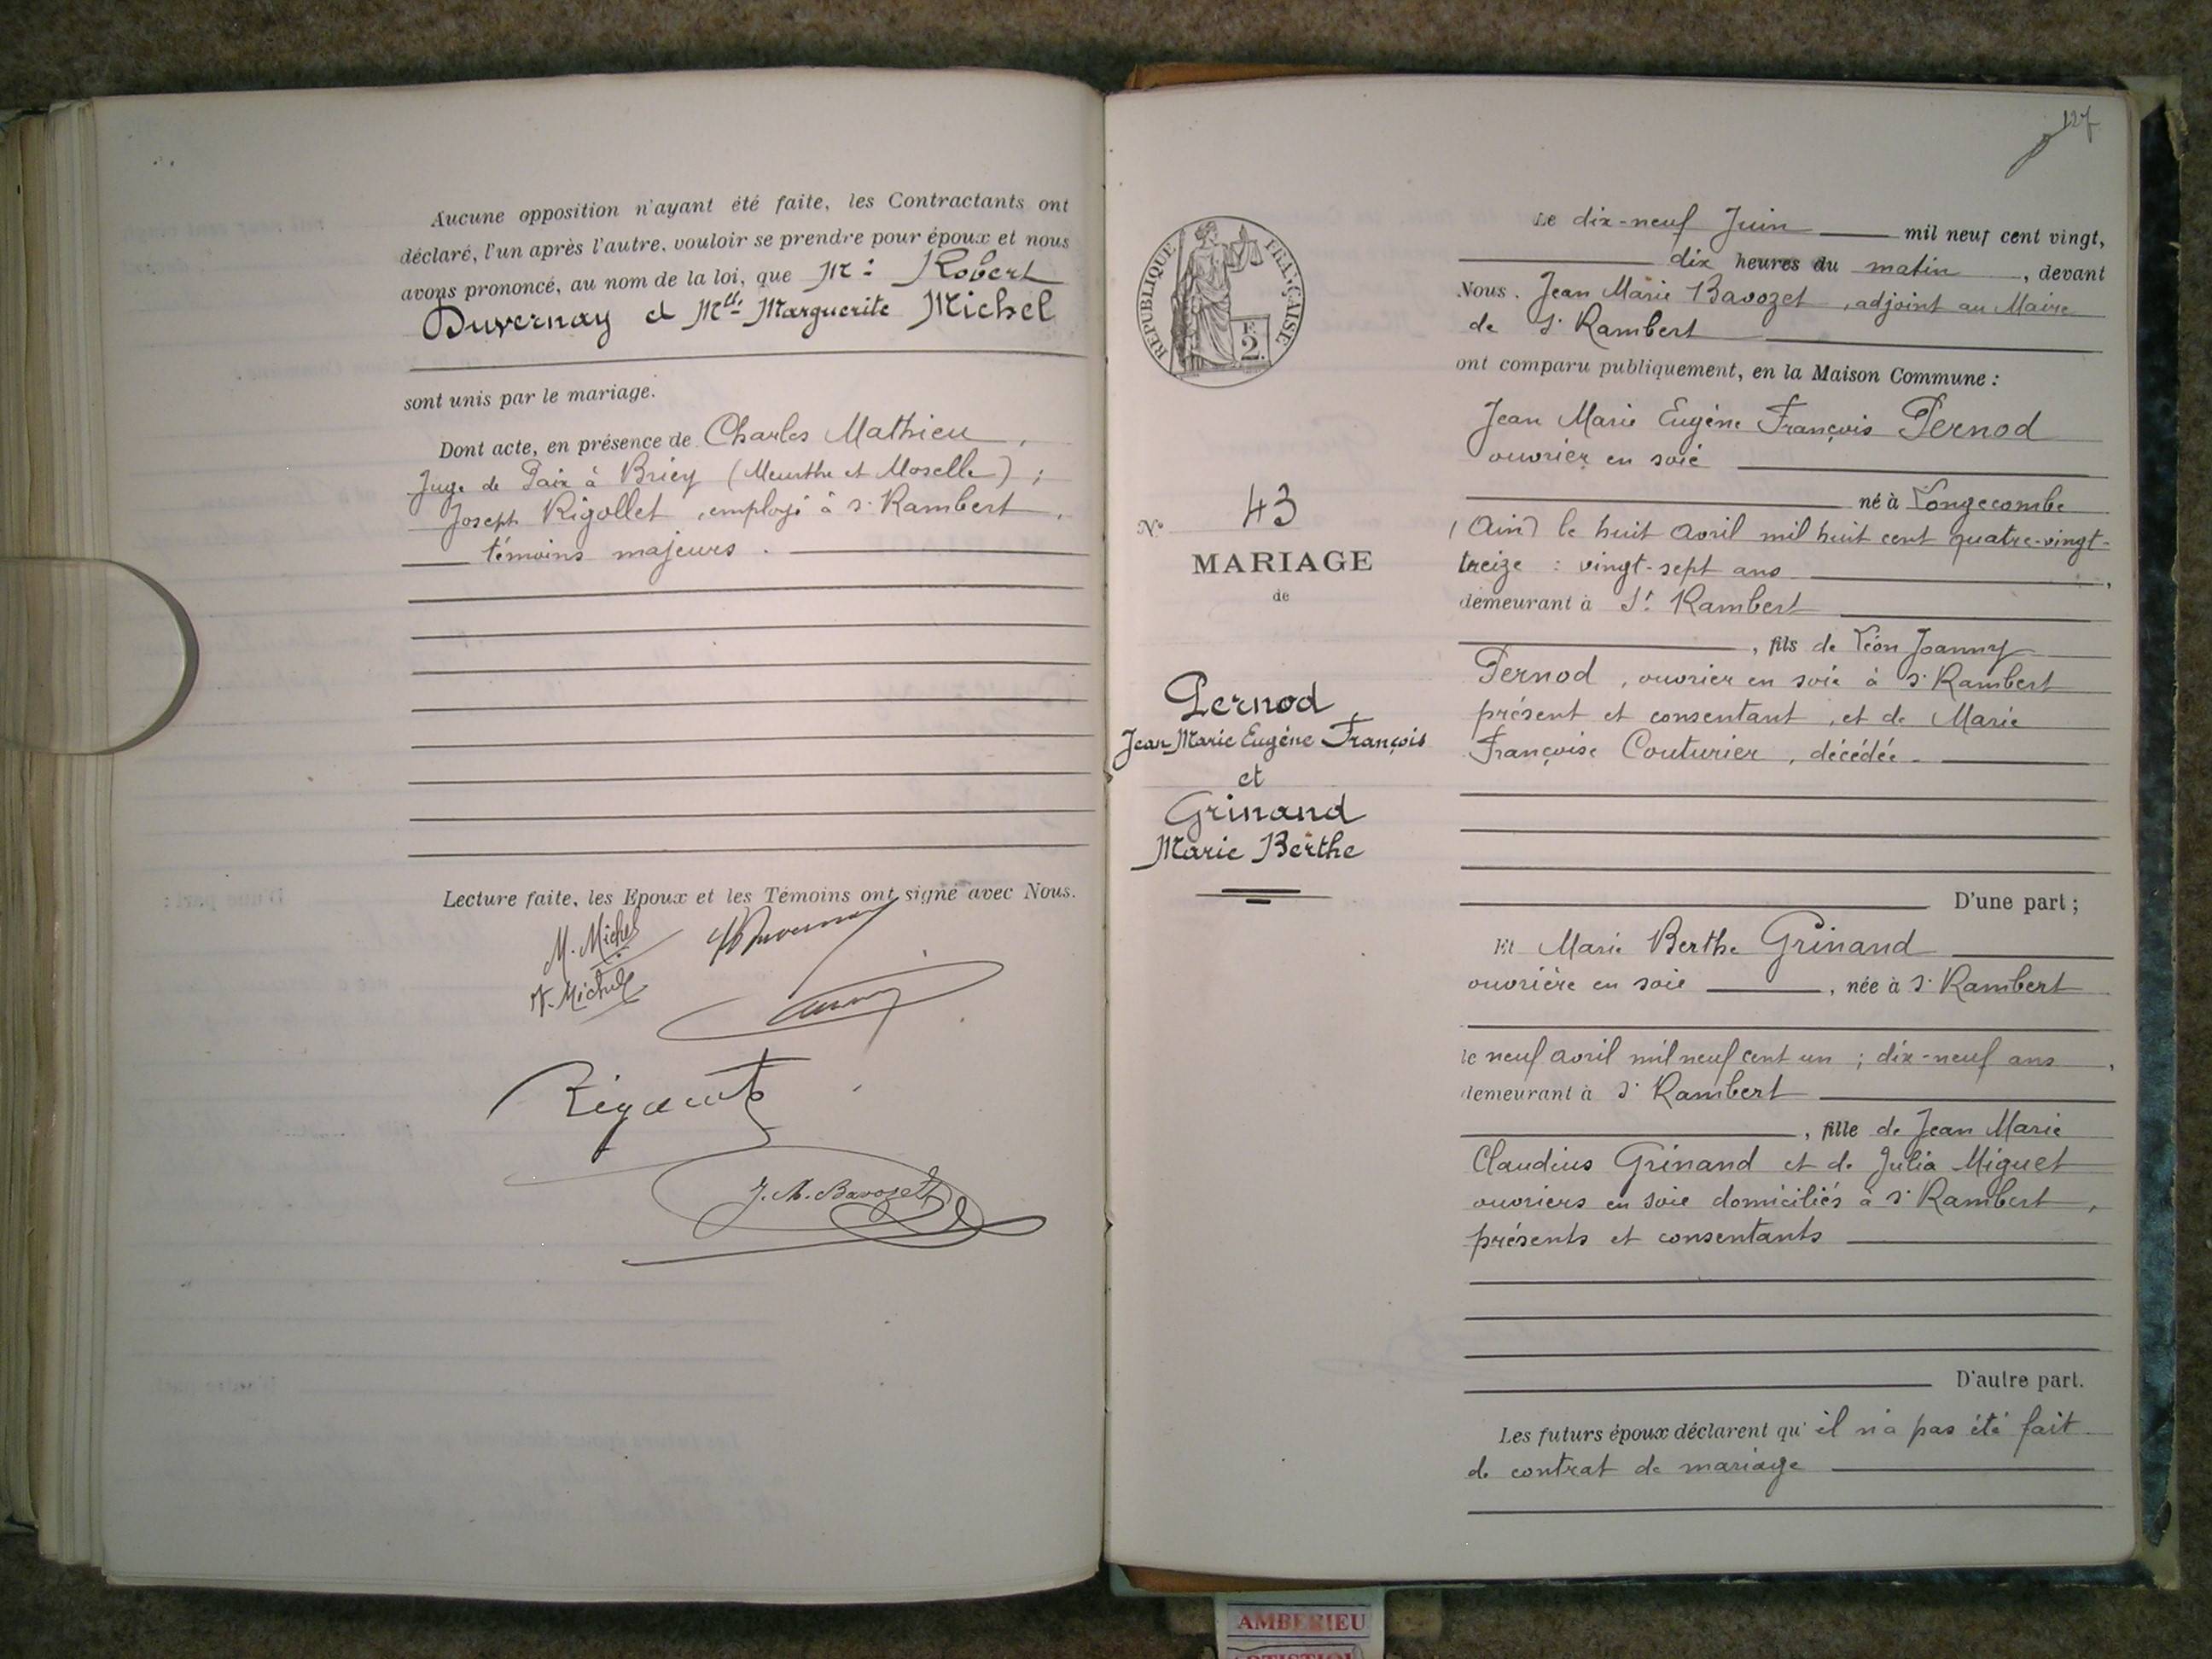 Aucune opposition n'ayant été faite, les Contractants ont
déclaré, l'un après l'autre, vouloir se prendre pour époux et nous
avons prononcé, au nom de la loi, que Mr: Robert
Duvernay et Mlle Marguerite Michel
sont unis par le mariage.
Dont acte, en présence de Charles Mathieu,
Juge de Paix à Briey (Meurthe et Moselle);
Joseph Rigollet, employé à St Rambert,
témoins majeurs.
Lecture faite, les Epoux et les Témoins ont signé avec Nous.
M. Michel
Michel
J. M. Bavozet
127
REPUBLIQUE FRANÇAISE
F.
2.
No 43
MARIAGE
de
Pernod
Jean Marie Eugéne François
et
Grinand
Marie Berthe
Le dix-neuf Juin mil neuf cent vingt,
dix heures du matin, devant
Nous. Jean Marie Bavozet, adjoint au Maire
de St Rambert
ont comparu publiquement, en la Maison Commune :
Jean Marie Eugéne François Pernod
ouvrier en soie
né à Longecombe
(Ain) le huit Avril mil huit cent quatre-vingt-
treize : vingt-sept ans,
demeurant à St Rambert
, fils de Léon Joanny
Pernod, ouvrier en soie à St Rambert
présent et consentant, et de Marie
Françoise Couturier, décédée.
D'une part ;
Et Marie Berthe Grinand
ouvrière en soie, née à St Rambert
le neuf avril mil neuf cent un ; dix-neuf ans,
demeurant à St Rambert
, fille de Jean Marie
Claudius Grinand et de Julia Miguet
ouvriers en soie domiciliés à St Rambert,
présents et consentants
D'autre part.
Les futurs époux déclarent qu'il n'a pas été fait
de contrat de mariage
AMBERIEU